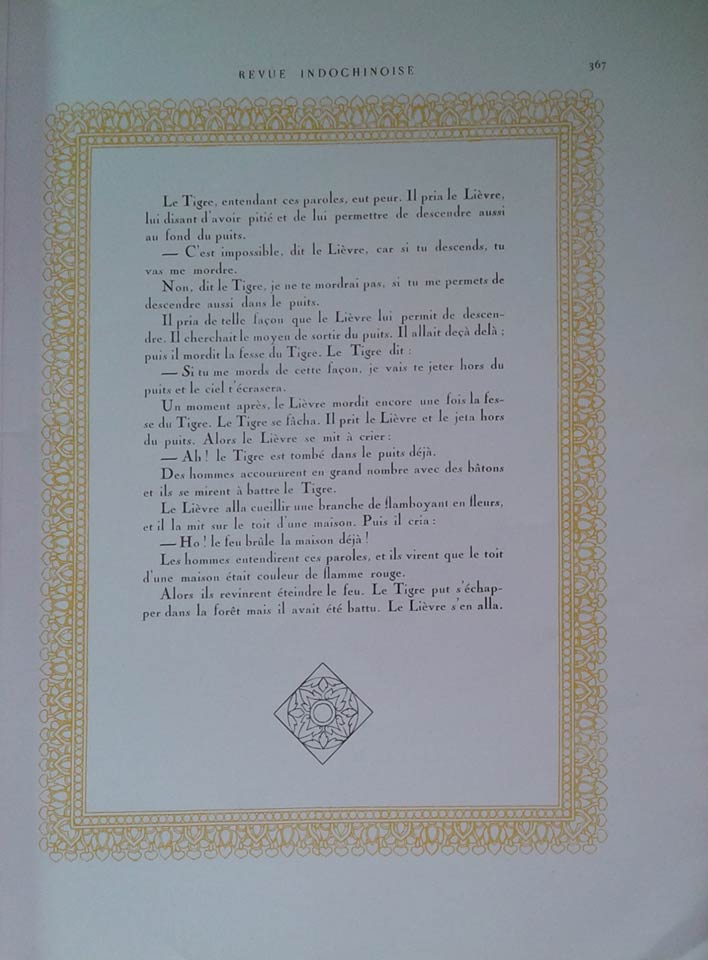 REVUE INDOCHINOISE
367
Le Tigre, entendant ces paroles, eut peur. Il pria le Lièvre,
lui disant d'avoir pitié et de lui permettre de descendre aussi
au fond du puits.
— C'est impossible, dit le Lièvre, car si tu descends, tu
vas me mordre.
Non, dit le Tigre, je ne te mordrai pas, si tu me permets de
descendre aussi dans le puits.
Il pria de telle façon que le Lièvre lui permit de descen-
dre. Il cherchait le moyen de sortir du puits. Il allait deçà delà ;
puis il mordit la fesse du Tigre. Le Tigre dit :
— Si tu me mords de cette façon, je vais te jeter hors du
puits et le ciel t'écrasera.
Un moment après, le Lièvre mordit encore une fois la fes-
se du Tigre. Le Tigre se fâcha. Il prit le Lièvre et le jeta hors
du puits. Alors le Lièvre se mit à crier :
— Ah ! le Tigre est tombé dans le puits déjà.
Des hommes accoururent en grand nombre avec des bâtons
et ils se mirent à battre le Tigre.
Le Lièvre alla cueillir une branche de flamboyant en fleurs,
et il la mit sur le toit d'une maison. Puis il cria :
— Ho ! le feu brûle la maison déjà !
Les hommes entendirent ces paroles, et ils virent que le toit
d'une maison était couleur de flamme rouge.
Alors ils revinrent éteindre le feu. Le Tigre put s'échap-
per dans la forêt mais il avait été battu. Le Lièvre s'en alla.